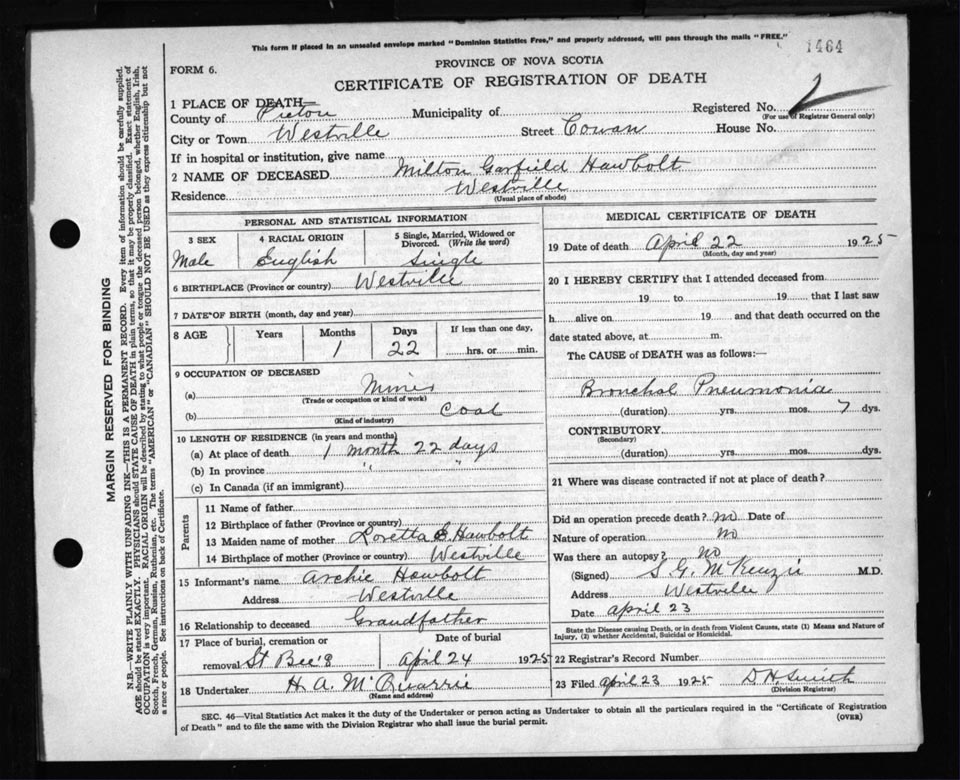 This form if placed in an unsealed envelope marked "Dominion Statistics Free," and properly addressed, will pass through the mails "FREE."
1464
FORM 6.
PROVINCE OF NOVA SCOTIA
CERTIFICATE OF REGISTRATION OF DEATH
1 PLACE OF DEATH—
County of Pictou Municipality of Registered No. 2
(For use of Registrar General only)
City or Town Westville Street Cowan House No.
If in hospital or institution, give name
2 NAME OF DECEASED Milton Garfield Hawbolt
Residence Westville
(Usual place of abode)
PERSONAL AND STATISTICAL INFORMATION
3 SEX 4 RACIAL ORIGIN 5 Single, Married, Widowed or Divorced. (Write the word)
Male English Single
6 BIRTHPLACE (Province or country) Westville
7 DATE OF BIRTH (month, day and year)
8 AGE Years Months Days If less than one day,
1 22 hrs. or min.
9 OCCUPATION OF DECEASED
(a) Miner
(Trade or occupation or kind of work)
(b) Coal
(Kind of industry)
10 LENGTH OF RESIDENCE (in years and months)
(a) At place of death 1 month 22 days
(b) In province " "
(c) In Canada (if an immigrant)
Parents
11 Name of father
12 Birthplace of father (Province or country)
13 Maiden name of mother Loretta E Hawbolt
14 Birthplace of mother (Province or country) Westville
15 Informant's name Archie Hawbolt
Address Westville
16 Relationship to deceased Grandfather
17 Place of burial, cremation or Date of burial
removal St Bee's April 24 1925
18 Undertaker H A
(Name and address)
MEDICAL CERTIFICATE OF DEATH
19 Date of death April 22 1925
(Month, day and year)
20 I HEREBY CERTIFY that I attended deceased from
19 to 19 that I last saw
h alive on 19 and that death occurred on the
date stated above, at m.
The CAUSE of DEATH was as follows:—
Bronchal Pneumonia
(duration) yrs. mos. 7 dys.
CONTRIBUTORY
(Secondary)
(duration) yrs. mos. dys.
21 Where was disease contracted if not at place of death?
Did an operation precede death? No Date of
Nature of operation No
Was there an autopsy? No
(Signed) S G. McKenzie M.D.
Address Westville
Date April 23
State the Disease causing Death, or in death from Violent Causes, state (1) Means and Nature of
Injury, (2) whether Accidental, Suicidal or Homicidal.
22 Registrar's Record Number
23 Filed April 23 1925 D H Smith
(Division Registrar)
SEC. 46—Vital Statistics Act makes it the duty of the Undertaker or person acting as Undertaker to obtain all the particulars required in the "Certificate of Registration
of Death" and to file the same with the Division Registrar who shall issue the burial permit. (OVER)
MARGIN RESERVED FOR BINDING
N.B.—WRITE PLAINLY WITH UNFADING INK—THIS IS A PERMANENT RECORD. Every item of information should be carefully supplied.
AGE should be stated EXACTLY. PHYSICIANS should STATE CAUSE OF DEATH in plain terms, so that it may be properly classified. Exact statement of
OCCUPATION is very important. RACIAL ORIGIN will be described by stating to what people or tongue the deceased person belonged, whether English, Irish,
Scotch, French, German, Russian, Ruthenian, etc. The terms "AMERICAN" or "CANADIAN" SHOULD NOT BE USED as they express citizenship but not
a race or people. See instructions on back of Certificate.